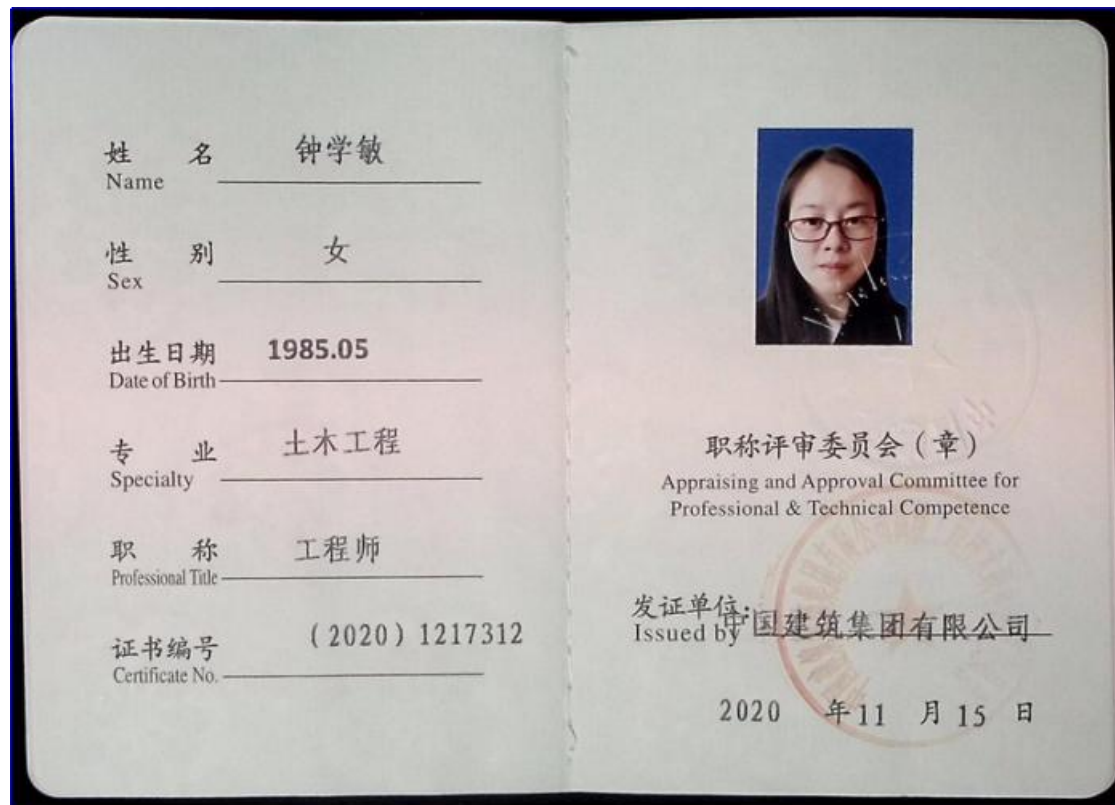 姓 名 钟学敏
Name
性 别 女
Sex
出生日期 1985.05
Date of Birth
专 业 土木工程
Specialty
职 称 工程师
Professional Title
证书编号 (2020)1217312
Certificate No.
职称评审委员会(章)
Appraising and Approval Committee for
Professional & Technical Competence
发证单位:
Issued by 中国建筑集团有限公司
2020 年 11 月 15 日